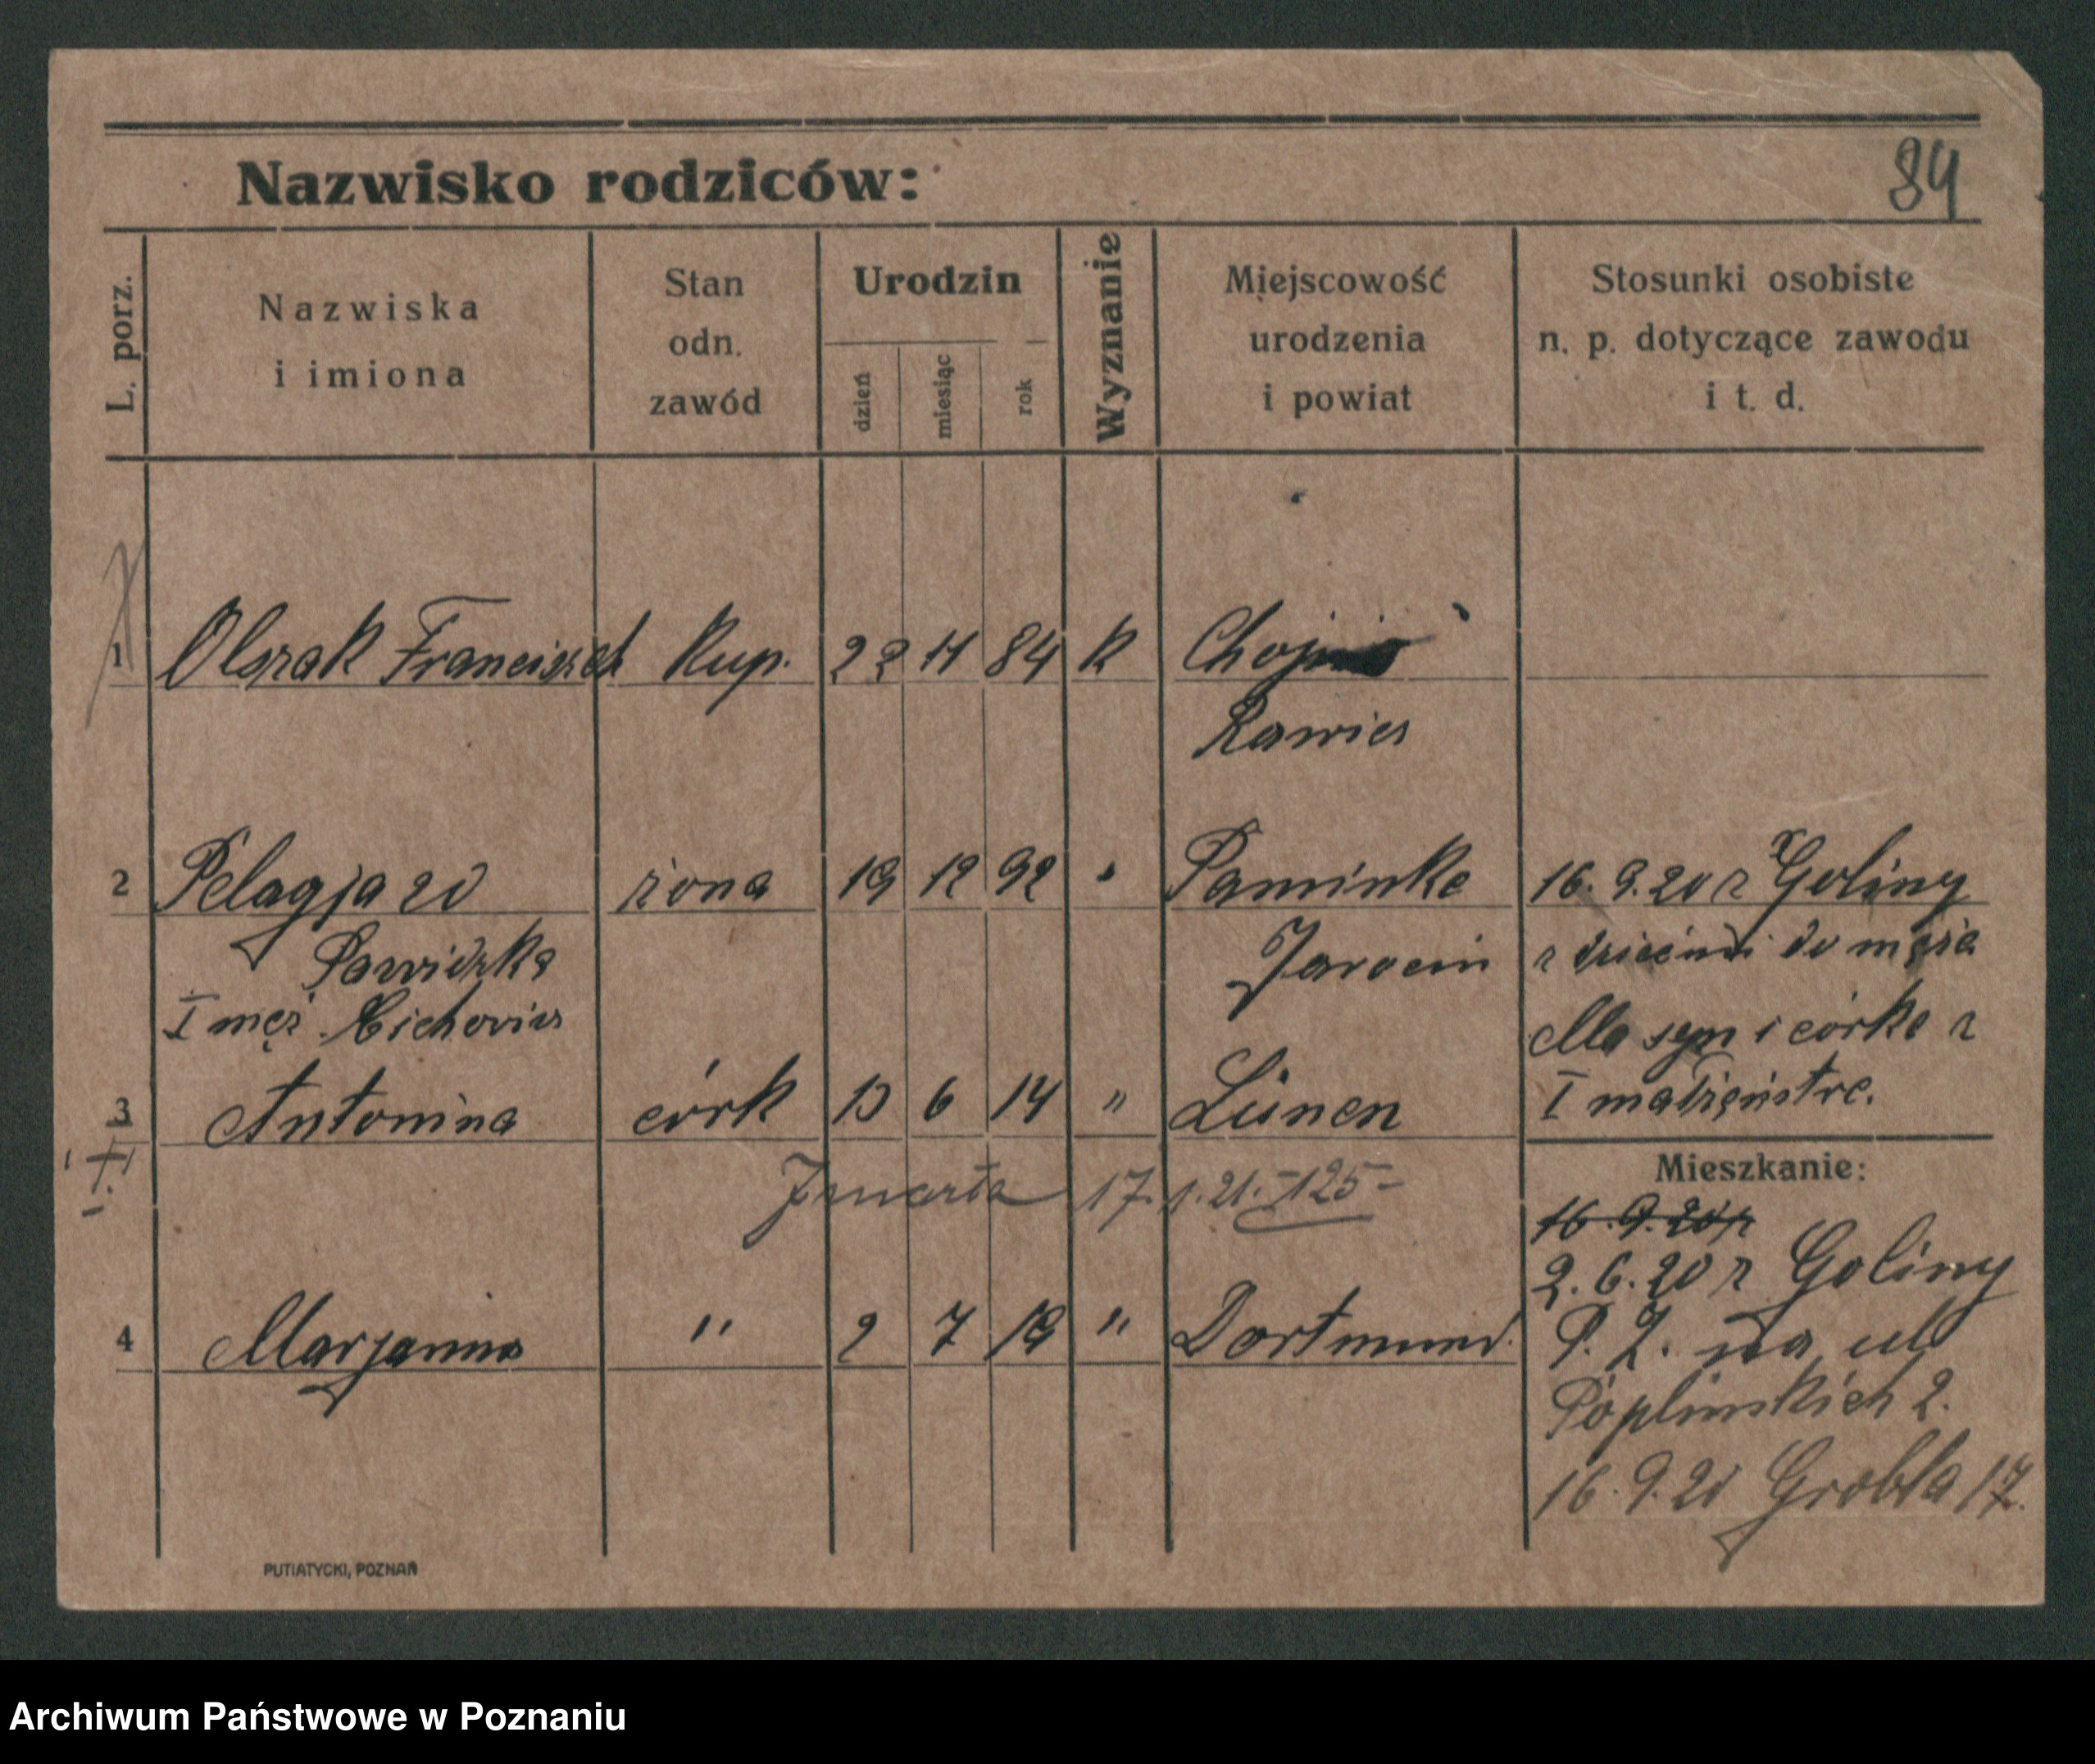 84
Nazwisko rodziców:
L. porz.
Nazwiska
i imiona
Stan
odn.
zawód
Urodzin
dzień
miesiąc
rok
Wyznanie
Miejscowość
urodzenia
i powiat
Stosunki osobiste
n. p. dotyczące zawodu
i t. d.
1 Olszak Franciszek Kup. 22 11 84 K
Rawicz
2 Pelagja zd żona 19 12 92 16. 9. 20 z Goliny
Jarocin z dziećmi do męża
I męż Cichowicz Ma syn i córkę z
I małżeństwa.
3 Antonina córk 13 6 14 " Lünen
Zmarła 17. 1. 21. - 125 -
Mieszkanie:
16. 9. 20 z
2. 6. 20 z Goliny
4 Marjanna " 2 7 19 " Dortmund.
P. Z. na ul
Poplińskich 2.
16. 9. 20 Grobla 17.
PUTIATYCKI, POZNAŃ
Archiwum Państwowe w Poznaniu